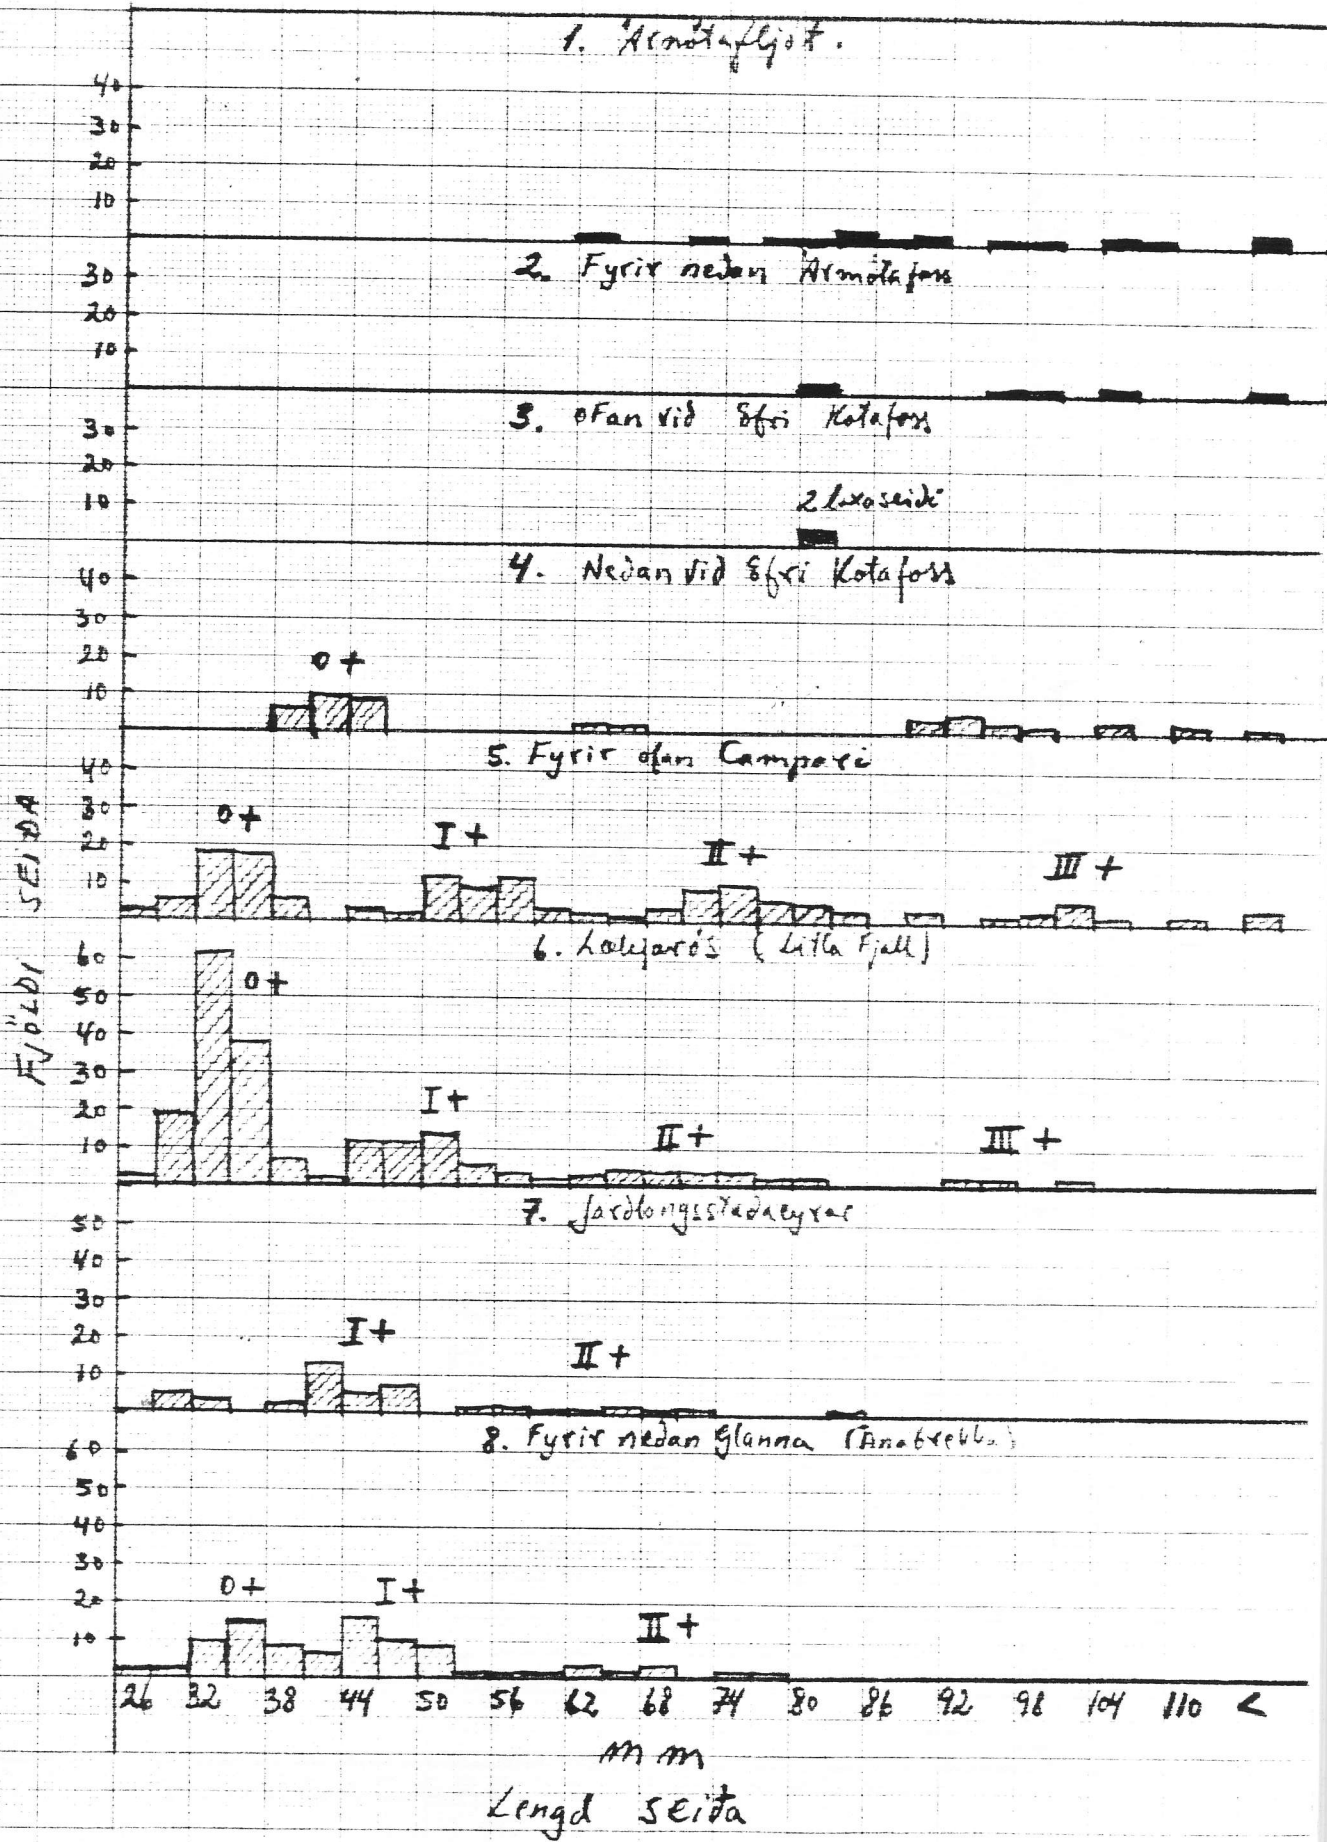 1. Ármótafljót.
40
30
20
10
2. Fyrir neðan Ármótafoss
30
20
10
3. ofan við Efri Kotafoss
30
20
10
2 laxaseiði
4. Neðan við Efri Kotafoss
40
30
20
10
0+
5. Fyrir ofan Campari
40
30
20
10
0+ I+ II+ III+
6. Lækjarós (Litla Fjall)
60
50
40
30
20
10
0+ I+ II+ III+
7. Jarðlangsstaðaeyrar
50
40
30
20
10
I+ II+
8. Fyrir neðan Glanna (Anabrekka)
60
50
40
30
20
10
0+ I+ II+
FJÖLDI SEIÐA
26 32 38 44 50 56 62 68 74 80 86 92 98 104 110 <
mm
Lengd Seiða